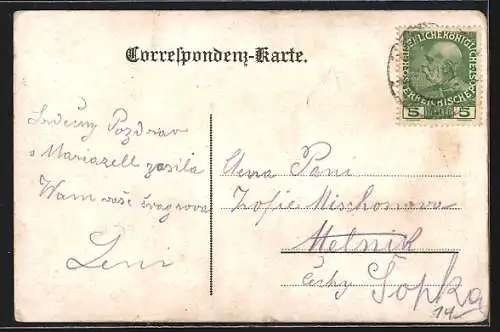 Correspondenz-Karte.
KAISERLICHE KÖNIGLICHE
ÖSTERREICHISCHE POST
5 5
Srdečny Pozdrav
s Mariazell zasila
Wam
Leni
Pani
Žofie Mischonova
Melnik
Čechy Šopka
14